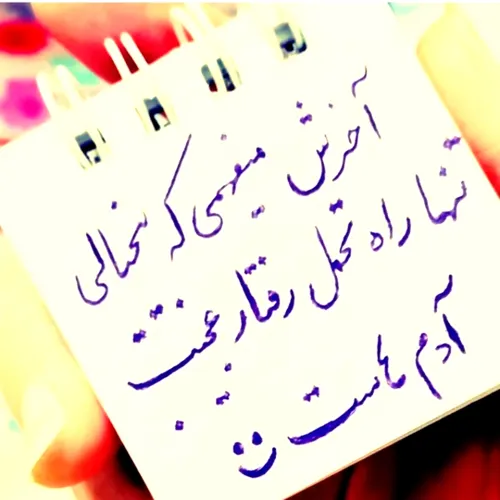 آخرش میفهمی که بیخیالی
تنها راه تحمل رفتار عجیب
آدم هاست